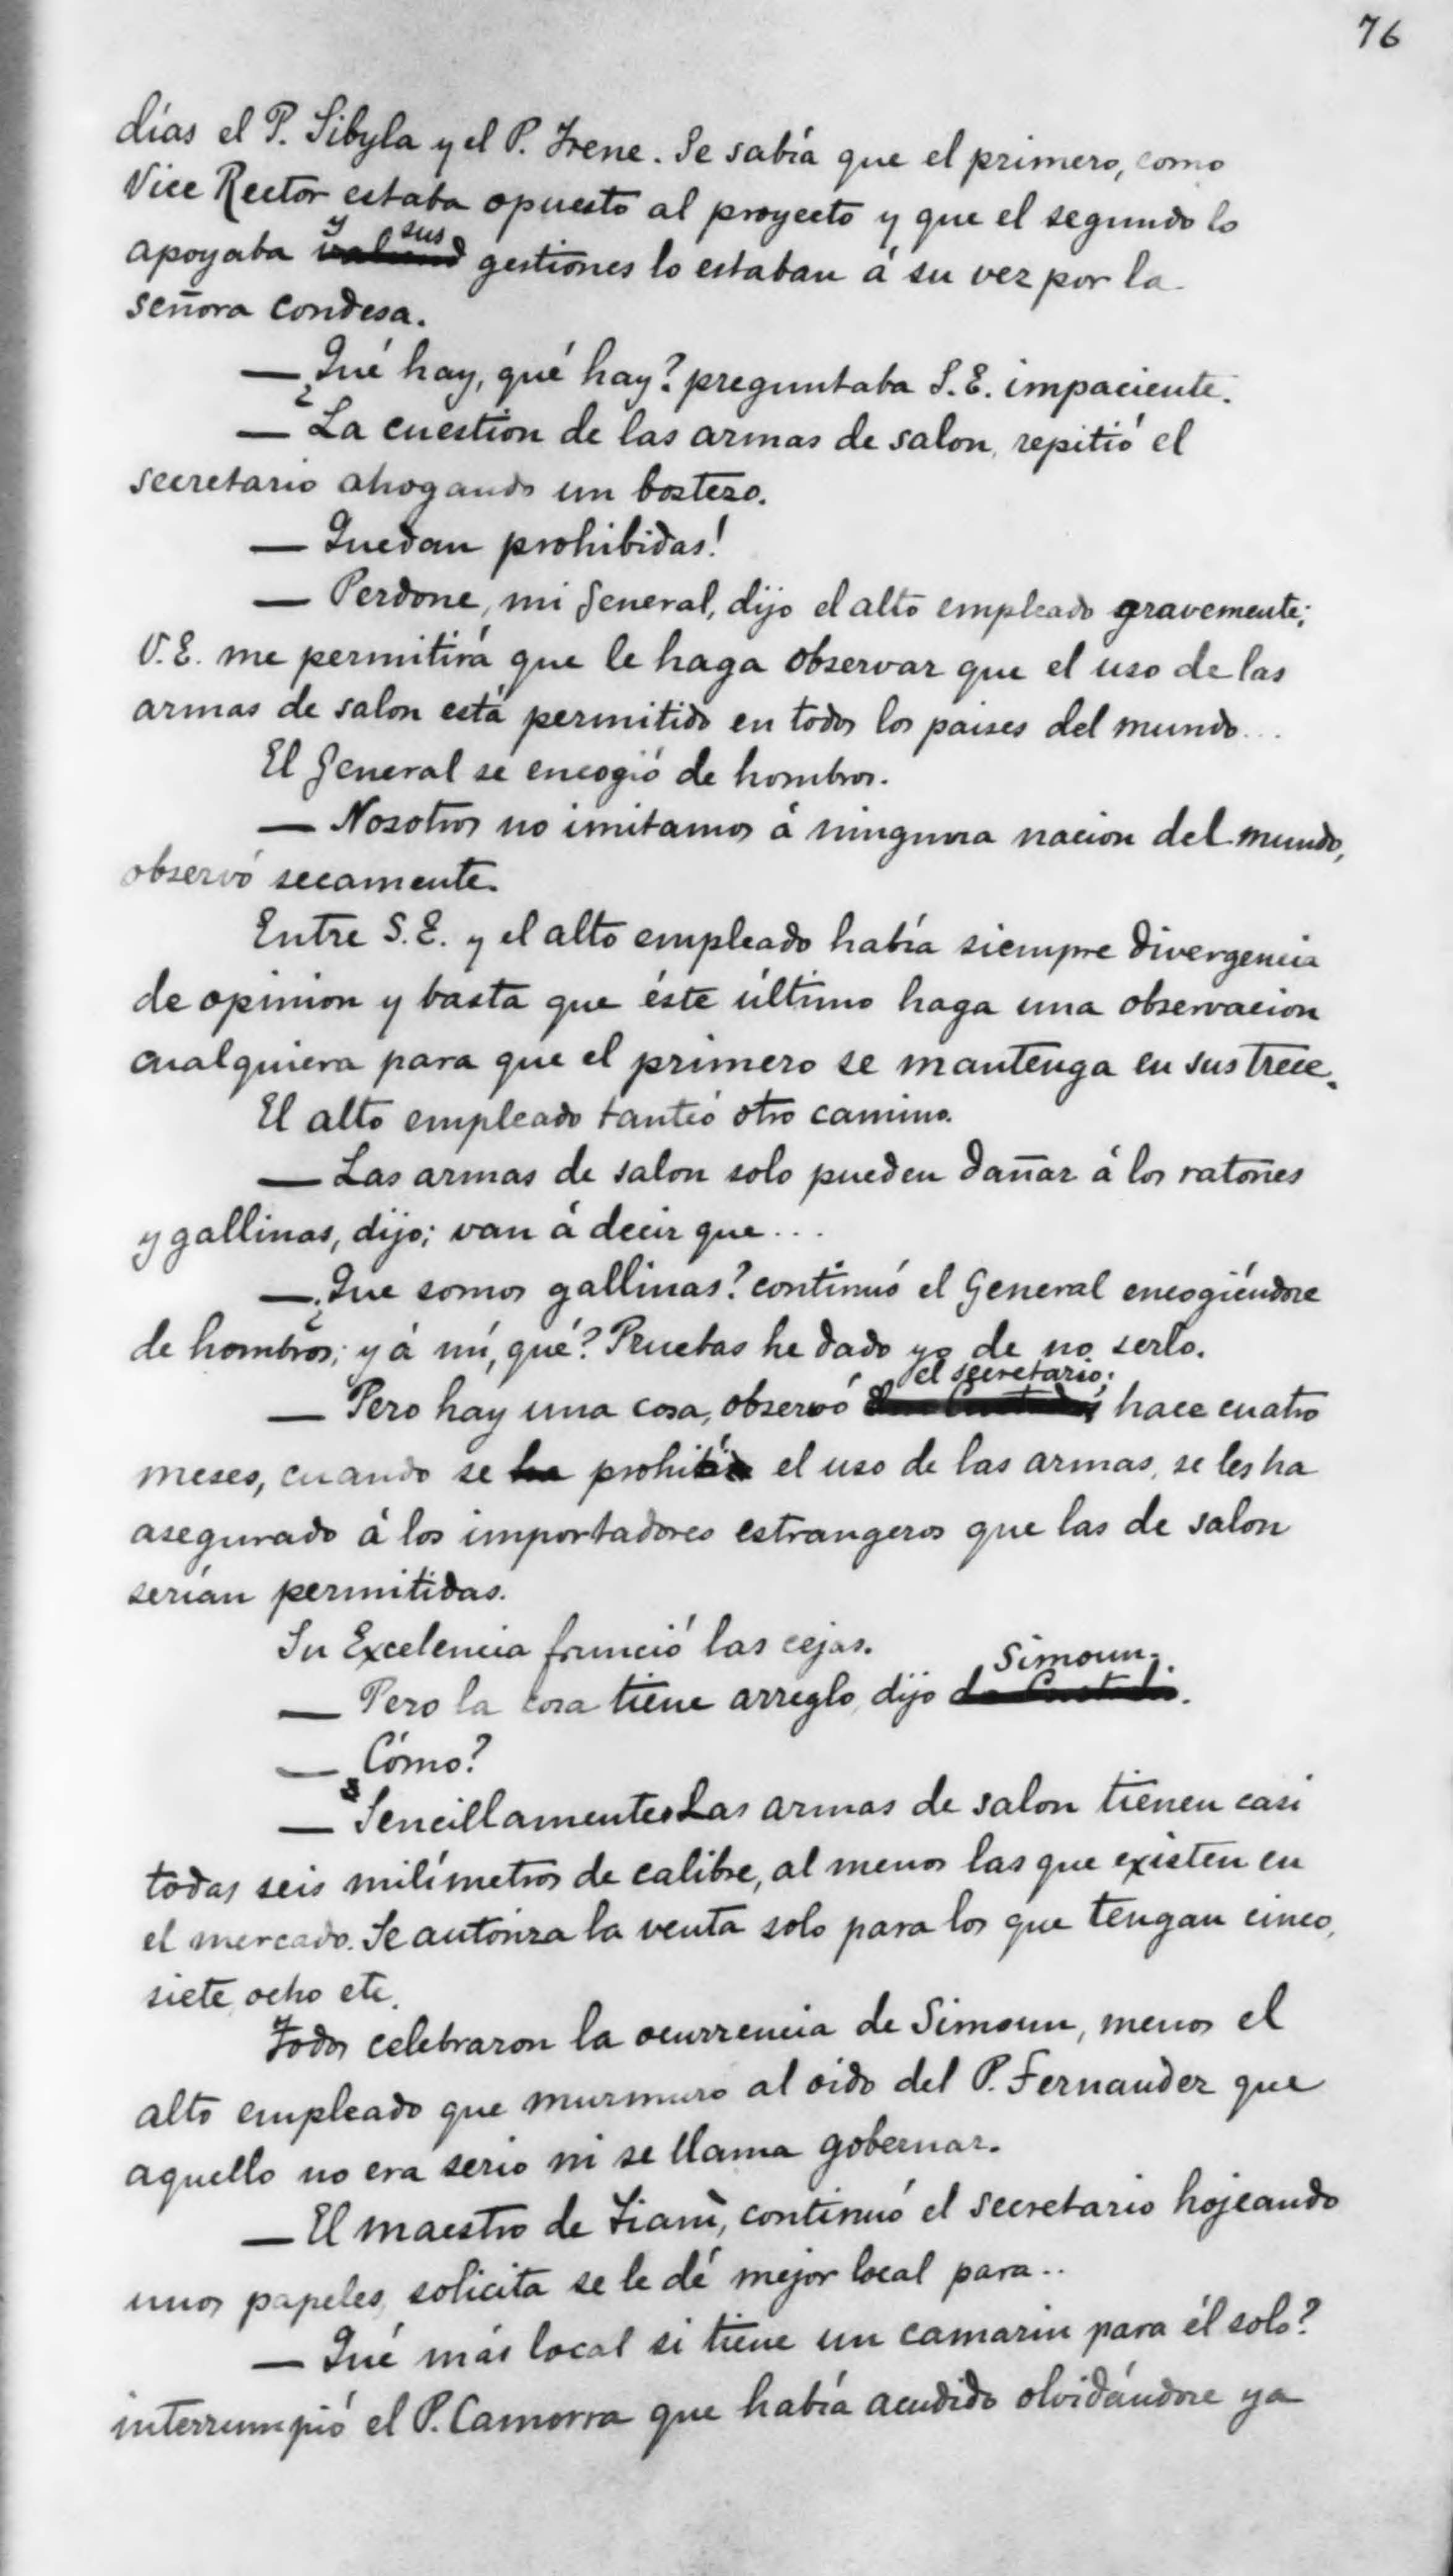 76
días el P. Sibyla y el P. Irene. Se sabía que el primero, como
Vice Rector estaba opuesto al proyecto y que el segundo lo
apoyaba y sus gestiones lo estaban á su vez por la
señora Condesa.
— ¿Qué hay, qué hay? preguntaba S.E. impaciente.
— La cuestion de las armas de salon, repitió el
secretario ahogando un bostezo.
— Quedan prohibidas!
— Perdone, mi General, dijo el alto empleado gravemente;
V.E. me permitirá que le haga observar que el uso de las
armas de salon está permitido en todos los paises del mundo...
El General se encogió de hombros.
— Nosotros no imitamos á ninguna nacion del mundo,
observó secamente.
Entre S.E. y el alto empleado había siempre divergencia
de opinion y basta que éste último haga una observacion
cualquiera para que el primero se mantenga en sus trece.
El alto empleado tanteó otro camino.
— Las armas de salon solo pueden dañar á los ratones
y gallinas, dijo; van á decir que...
— ¿Que somos gallinas? continuó el General encogiéndose
de hombros; y á mí, qué? Pruebas he dado yo de no serlo.
el secretario;
— Pero hay una cosa, observó hace cuatro
meses, cuando se ha prohibió el uso de las armas, se les ha
asegurado á los importadores estrangeros que las de salon
serían permitidas.
Su Excelencia frunció las cejas.
Simoun.
— Pero la cosa tiene arreglo, dijo
— ¿Cómo?
— Sencillamente. Las armas de salon tienen casi
todas seis milímetros de calibre, al menos las que existen en
el mercado. Se autoriza la venta solo para los que tengan cinco,
siete, ocho etc.
Todos celebraron la ocurrencia de Simoun, menos el
alto empleado que murmuró al oido del P. Fernandez que
aquello no era serio ni se llama gobernar.
— El maestro de Tianì, continuó el secretario hojeando
unos papeles, solicita se le dé mejor local para..
— Qué más local si tiene un camarin para él solo?
interrumpió el P. Camorra que había acudido olvidándose ya